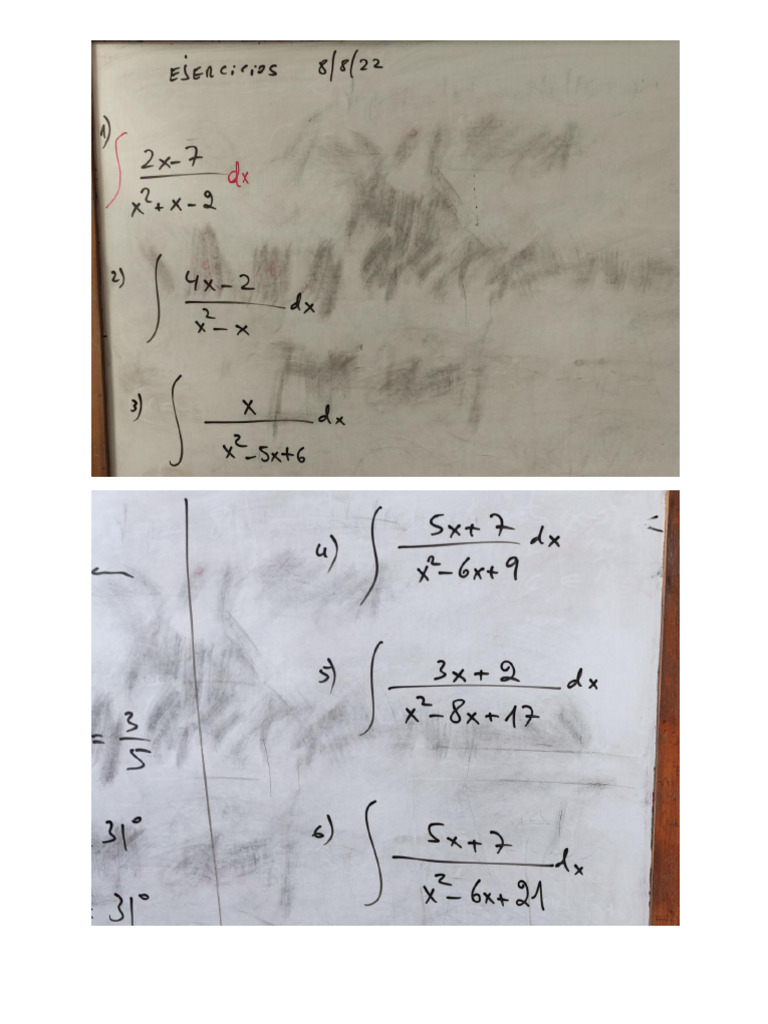 EJERCICIOS 8/8/22
1) ∫ (2x-7)/(x²+x-2) dx
2) ∫ (4x-2)/(x²-x) dx
3) ∫ x/(x²-5x+6) dx
4) ∫ (5x+7)/(x²-6x+9) dx
5) ∫ (3x+2)/(x²-8x+17) dx
= 3/5
6) ∫ (5x+7)/(x²-6x+21) dx
31°
= 31°